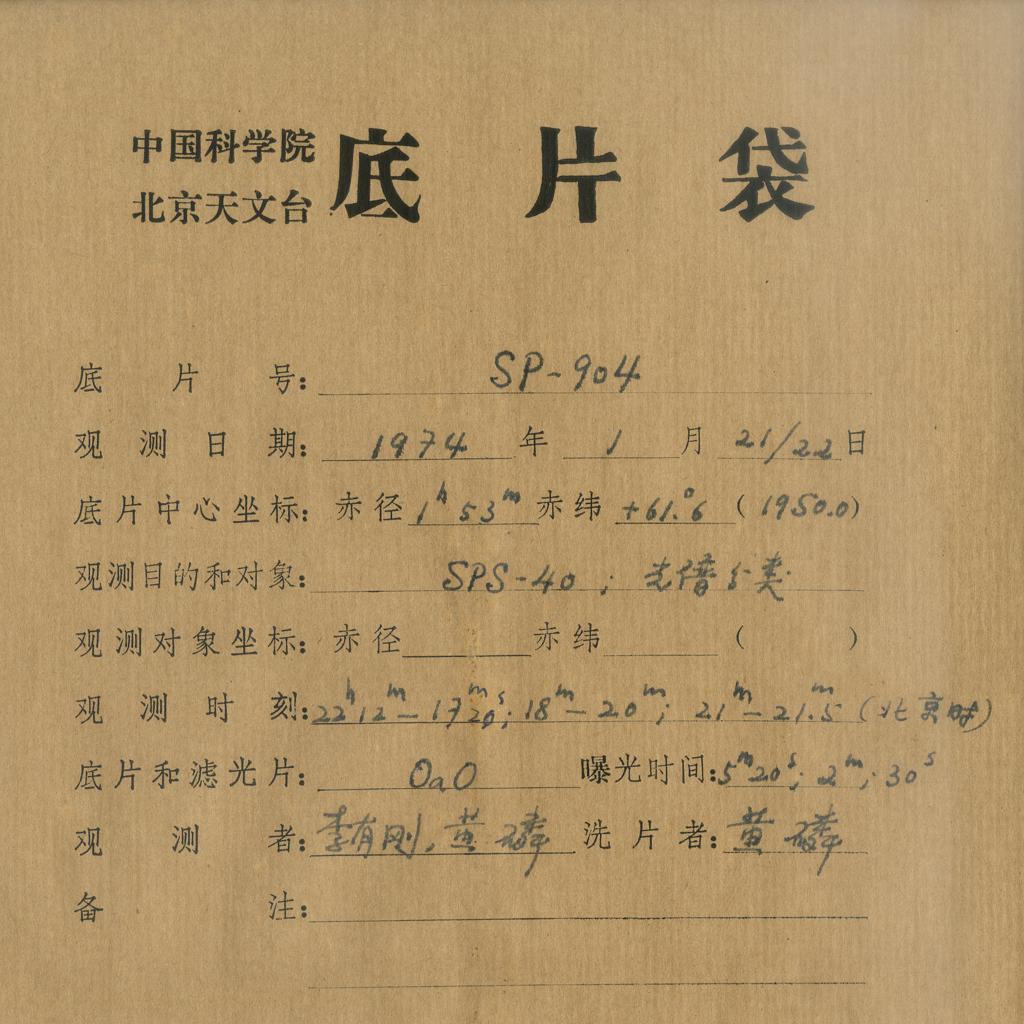 中国科学院
北京天文台
底片袋
底片号: SP-904
观测日期: 1974年1月21/22日
底片中心坐标: 赤径 1ʰ53ᵐ 赤纬 +61.°6 (1950.0)
观测目的和对象: SPS-40; 光谱分类
观测对象坐标: 赤径 赤纬 ( )
观测时刻: 22ʰ12ᵐ-17ᵐ20ˢ; 18ᵐ-20ᵐ; 21ᵐ-21.ᵐ5 (北京时)
底片和滤光片: OaO 曝光时间: 5ᵐ20ˢ; 2ᵐ; 30ˢ
观测者: 李有刚. 黄磷 洗片者: 黄磷
备注: